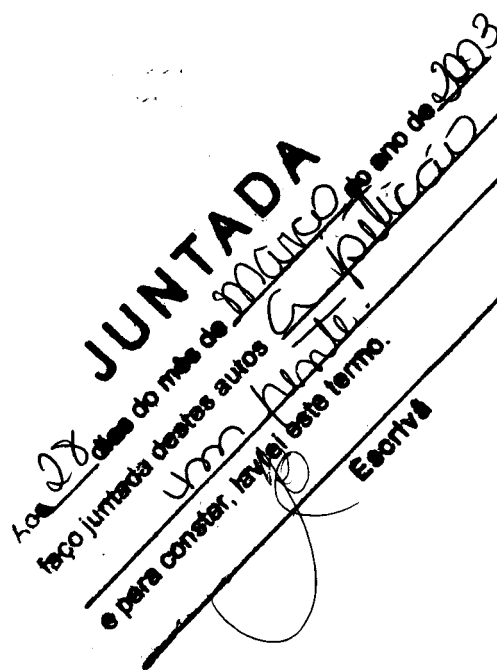 JUNTADA
Aos 28 dias do mês de março do ano de 2003
faço juntada destes autos a petição
em frente.
e para constar, lavrei este termo.
Escrivã